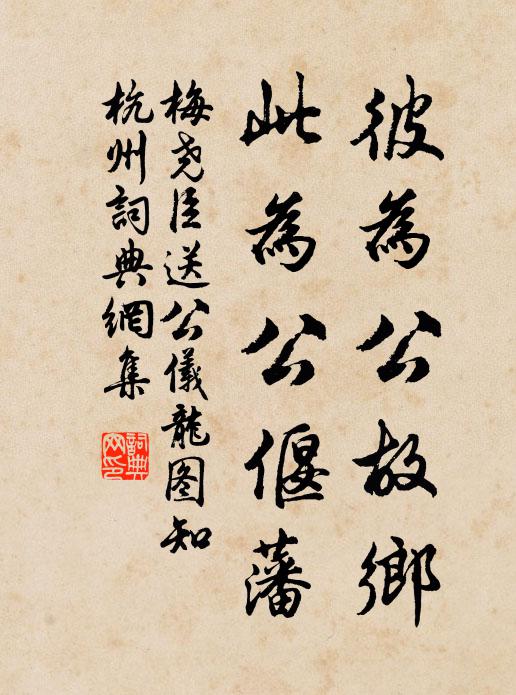 彼為公故鄉
此為公偃藩
梅尧臣送公儀龍图知
杭州詞典網集
詞典
网印